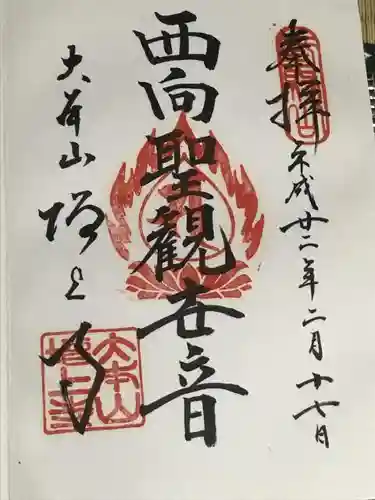 奉拝
平成廿二年二月十七日
西向聖観世音
大本山
増上寺
大本山
増上寺